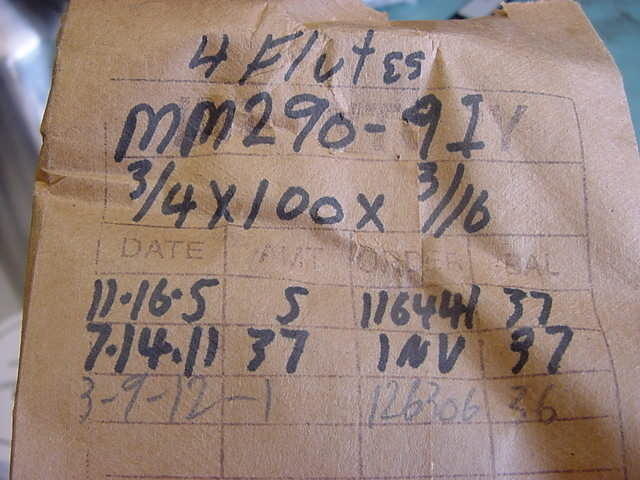 4 Flutes
MM290-9I
3/4 X 100 X 3/16
DATE AMT ORDER BAL
11·16·5 5 116441 37
7·14·11 37 INV 37
3-9-12 -1 126306 36